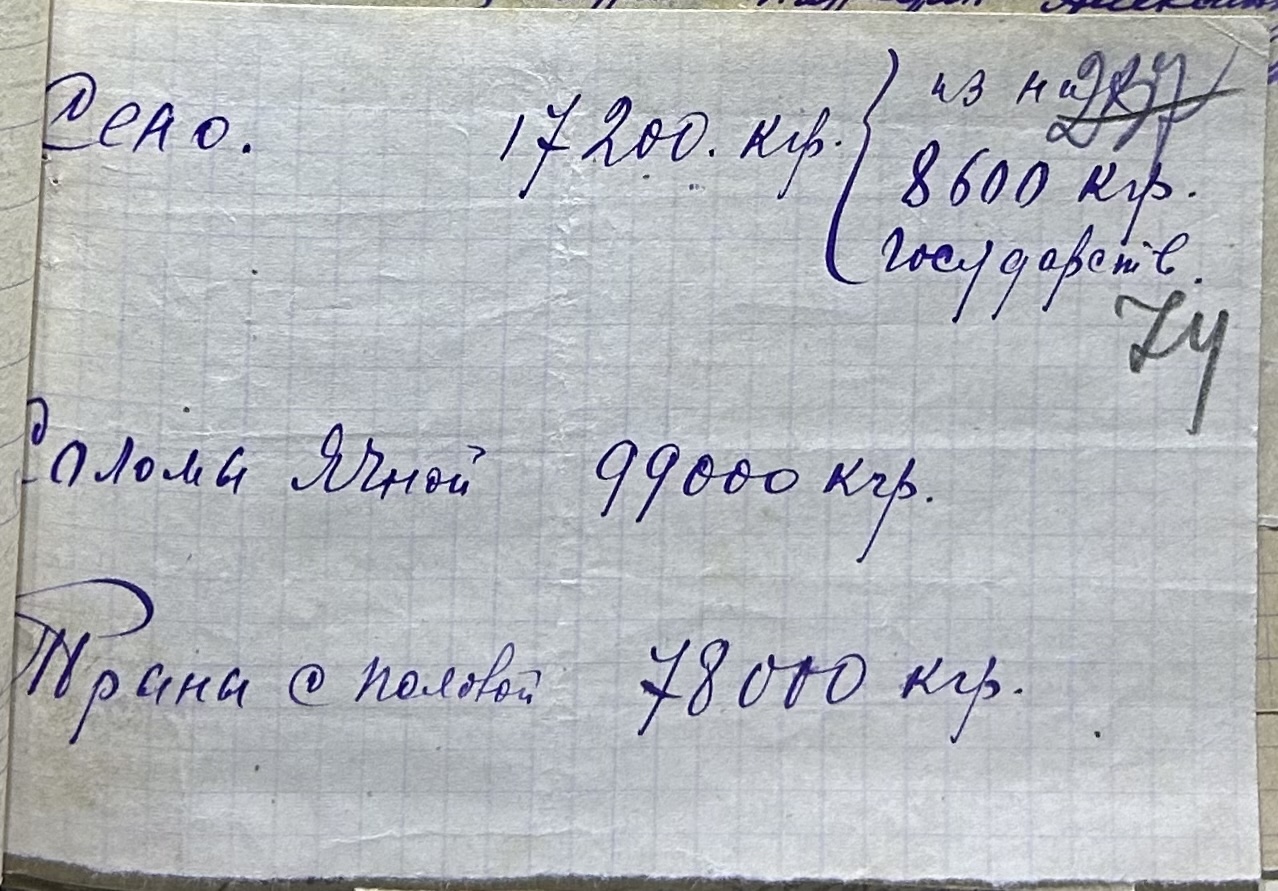 Сено. 17200. кгр. { из них
8600 кгр.
государств.
74
Соломы Ячной 99000 кгр.
Трины с половой 78000 кгр.